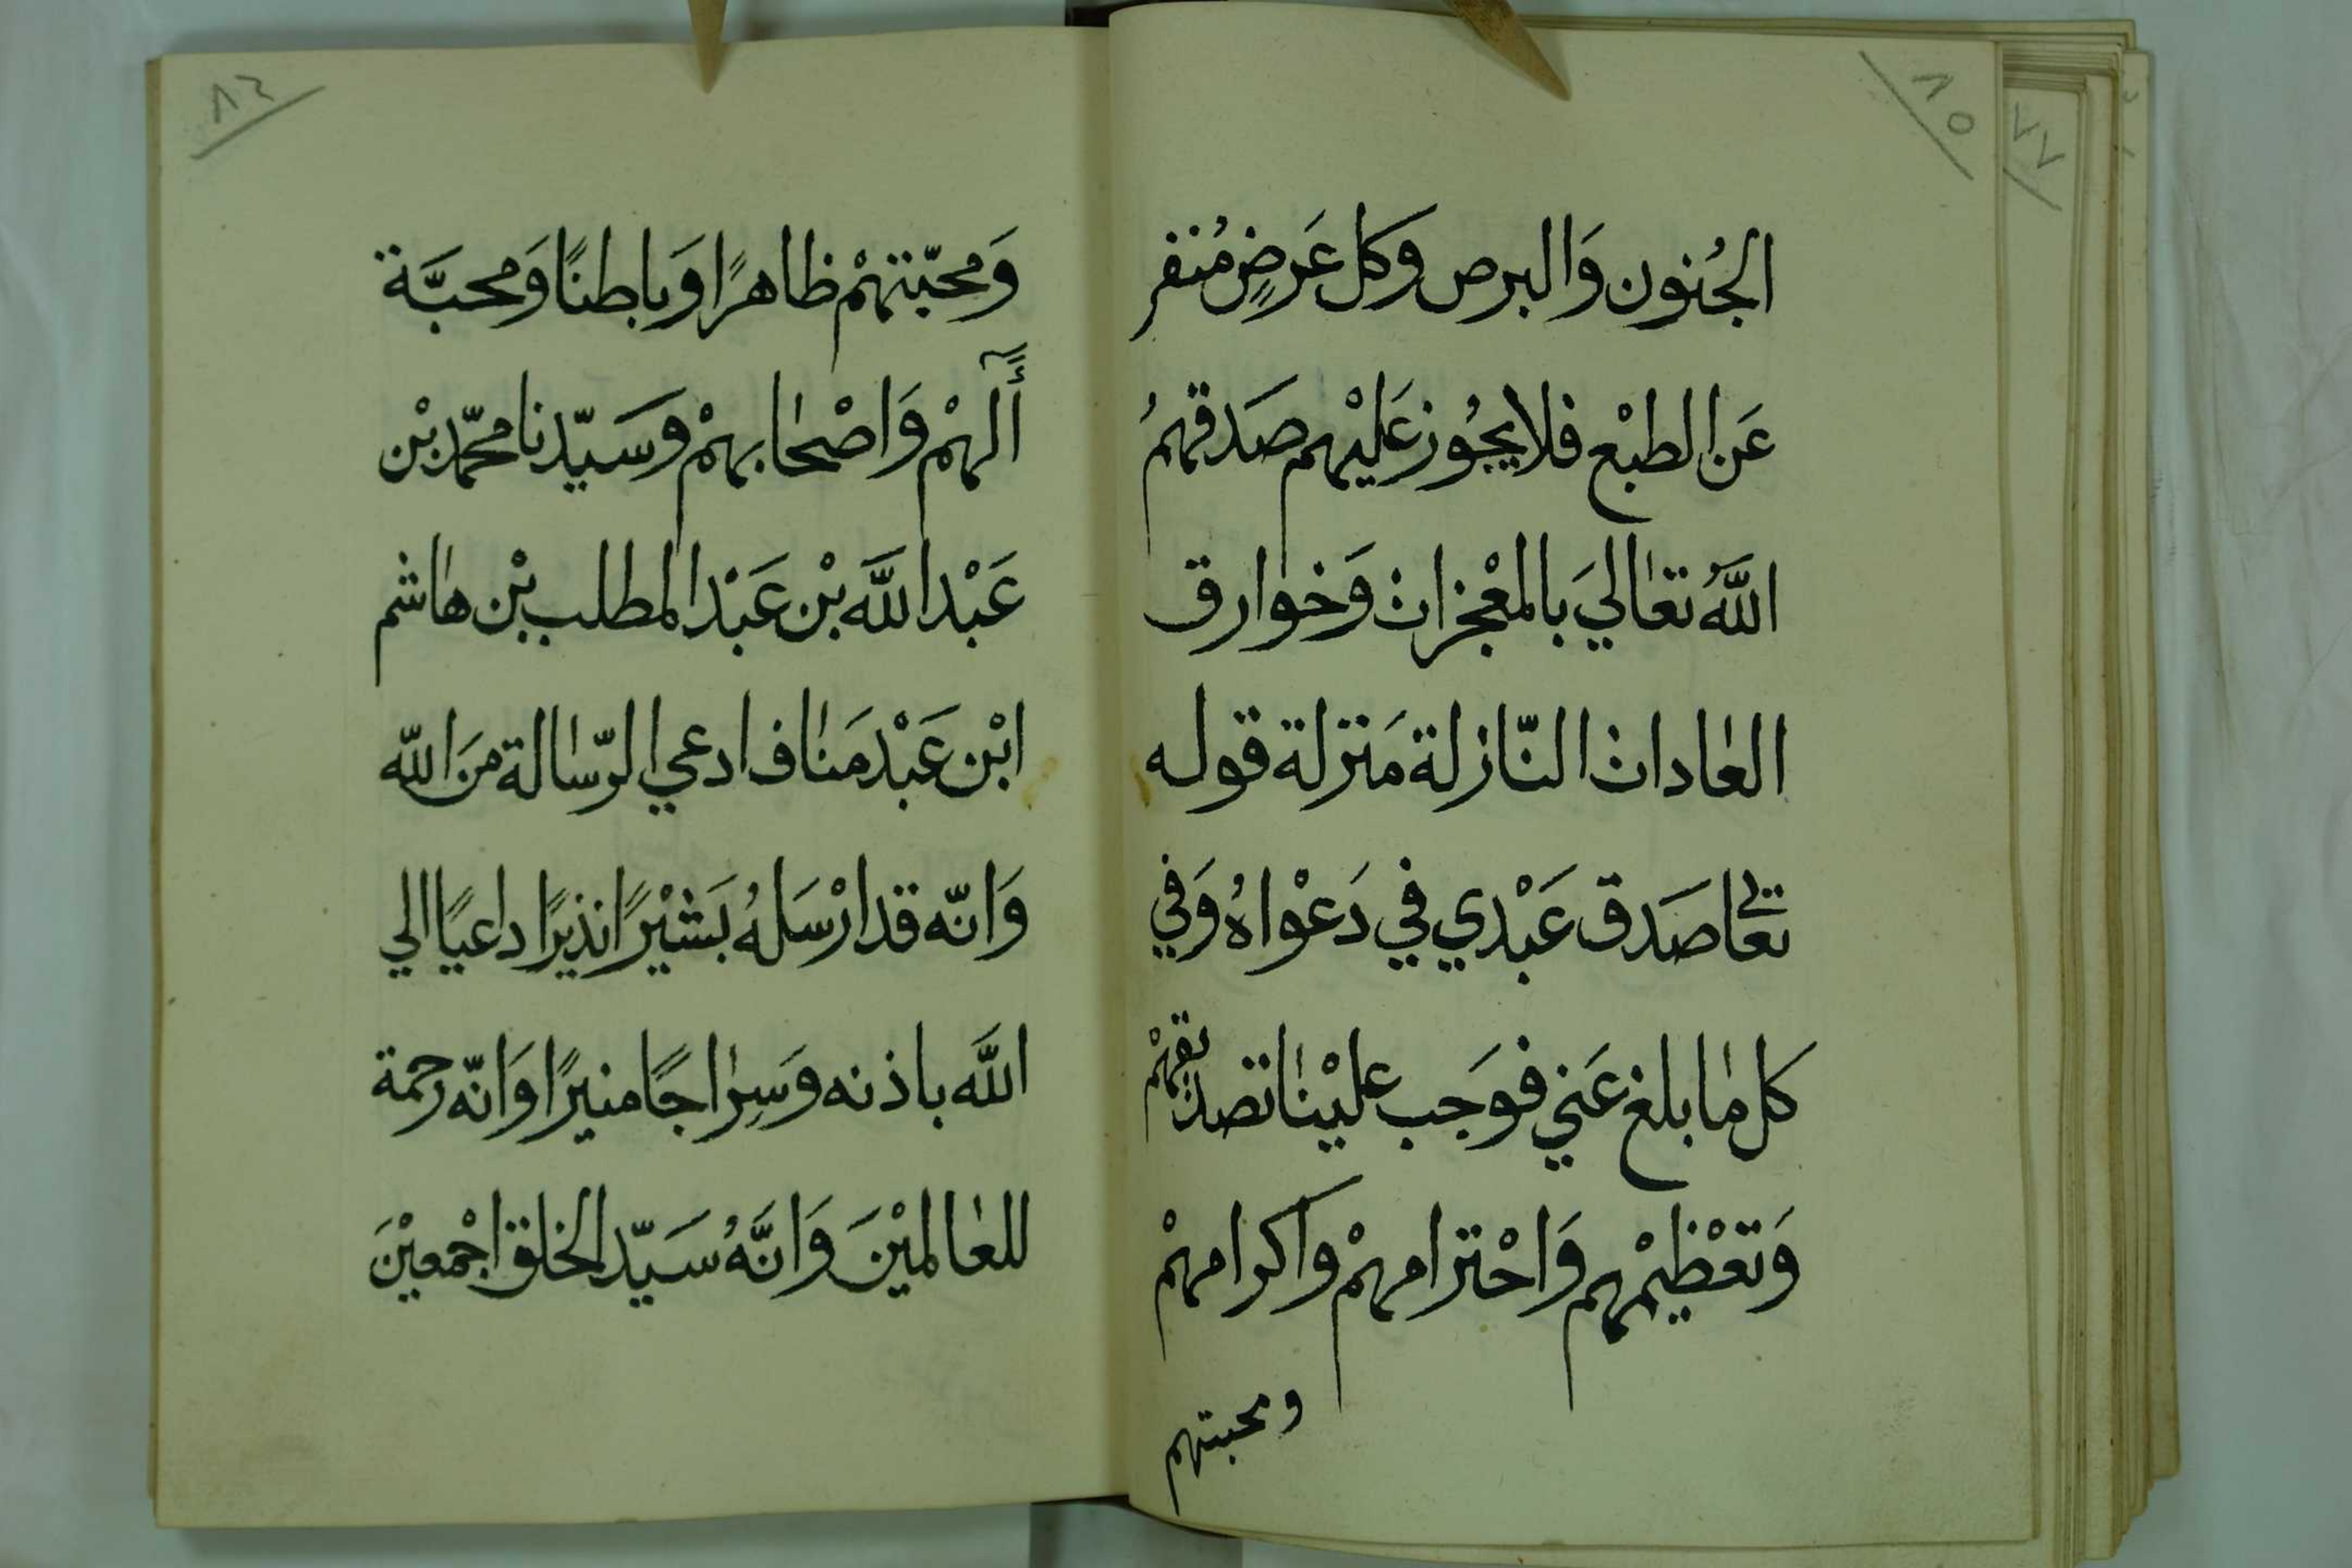 ٨٥
٧٧
الجُنون وَالبرص وكل عَرضٍ مُنفر
عَن الطبْع فلا يجُوز عَليْهم صَدقهمُ
اللَّهُ تعَالىَ بالمعْجزات وَخوارق
العَادات النّازلة مَنزلة قوله
تعالى صَدق عَبْدي في دَعْواهُ وَفي
كل مَا بلغ عَني فوَجب عليْنا تصديقهمْ
وَتعْظيْمهم وَاحْترامهمْ وَاكرامهمْ
ومحبتهم
٨٦
وَمحبّتهمْ ظاهرًا وَباطنًا وَمحبَّة
آلهمْ وَاصْحابهمْ وسَيّدنا محمّد بْن
عَبْد اللَّه بْن عَبْد المطلب بْن هاشم
ابْن عَبْد مَناف ادعي الرّسالة مَن اللّه
وَانّه قد ارْسَلهُ بَشيْرًا نذيرًا داعيًا الي
اللَّه باذنه وَسِراجًا منيرًا وَانّه رحمة
للعَالميْنَ وَانَّهُ سَيّد الخلق اجْمعيْنَ